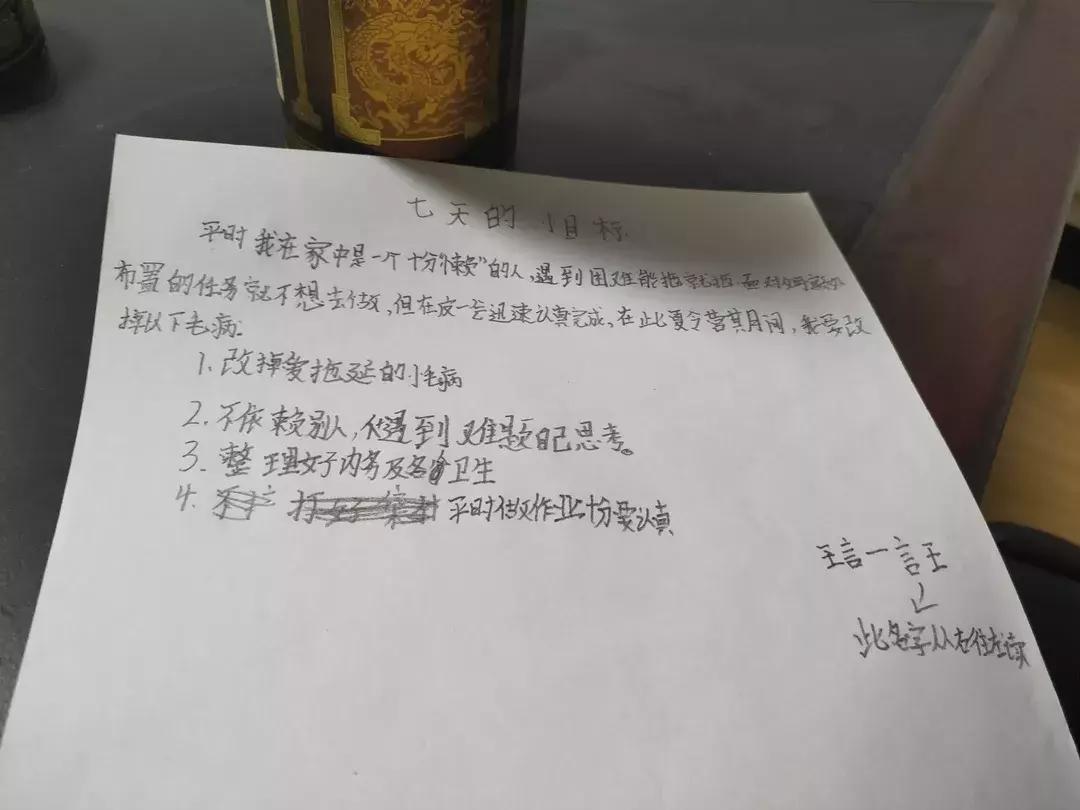 七天的小目标
平时我在家中是一个十分“懒”的人，遇到困难能拖就拖，面对
布置的任务就不想去做，但在这一会迅速认真完成，在此夏令营其月间，我要改
掉以下毛病：
1. 改掉爱拖延的小毛病
2. 不依赖别人，遇到难题自己思考。
3. 整理好内务及各自卫生
4. 平时做作业十分要认真
王言一言王
此名字从右往左读